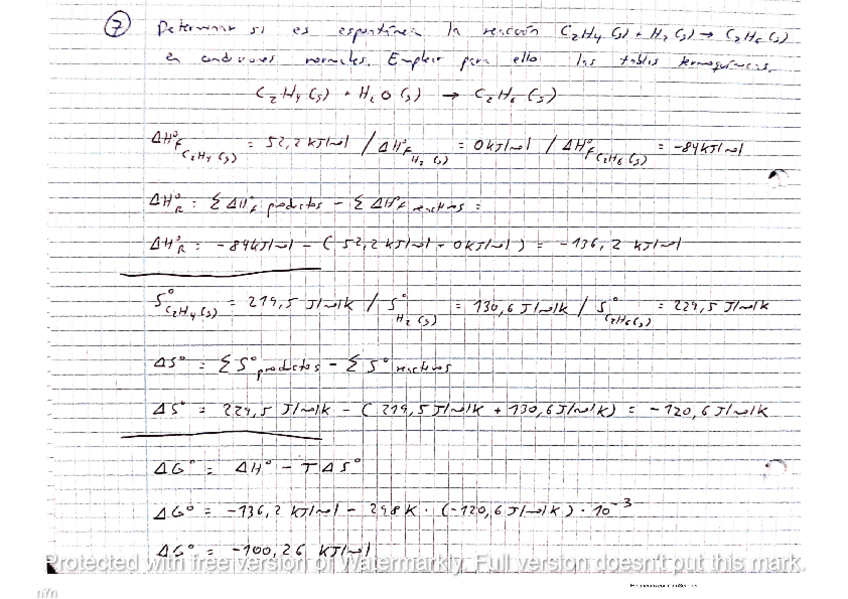 7 Determinar si es espontánea la reacción C2H4 (g) + H2 (g) → C2H6 (g)
en condiciones normales. Emplear para ello las tablas termoquímicas.
C2H4(g) + H2O(g) → C2H6(g)
ΔH°F C2H4(g) = 52,2 kJ/mol / ΔH°F H2(g) = 0 kJ/mol / ΔH°F C2H6(g) = -84 kJ/mol
ΔH°R = ΣΔH°F productos - ΣΔH°F reactivos =
ΔH°R = -84 kJ/mol - (52,2 kJ/mol + 0 kJ/mol) = -136,2 kJ/mol
S°C2H4(g) = 219,5 J/molK / S°H2(g) = 130,6 J/molK / S°C2H6(g) = 229,5 J/molK
ΔS° = ΣS°productos - ΣS°reactivos
ΔS° = 229,5 J/molK - (219,5 J/molK + 130,6 J/molK) = -120,6 J/molK
ΔG° = ΔH° - TΔS°
ΔG° = -136,2 kJ/mol - 298K · (-120,6 J/molK) · 10^-3
ΔG° = -100,26 kJ/mol
Protected with free version of Watermarkly. Full version doesn't put this mark.